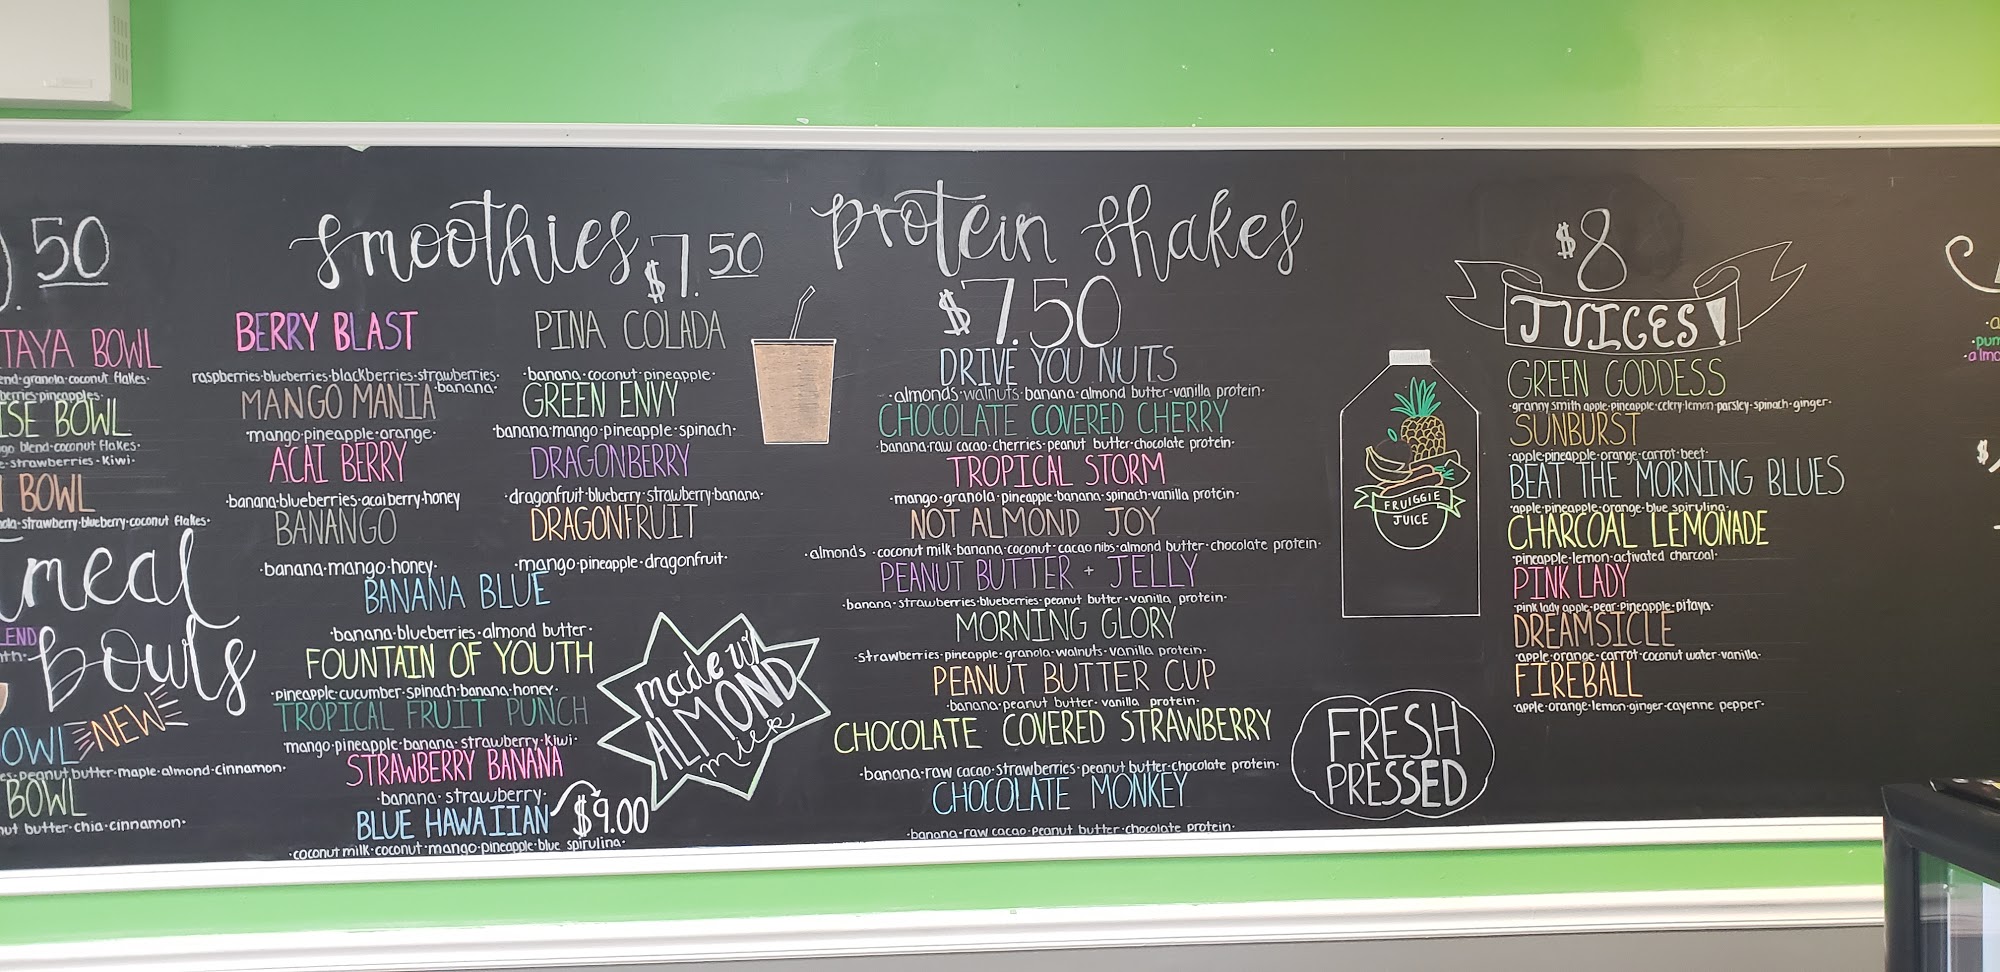 .50
TAYA BOWL
end·granola·coconut flakes·
berries·pineapples·
ISE BOWL
go blend·coconut flakes·
e·strawberries·kiwi·
BOWL
ola·strawberry·blueberry·coconut flakes·
meal
LEND
Bowls
NEW
OWL
es·peanut butter·maple·almond·cinnamon·
BOWL
nut butter·chia·cinnamon·
smoothies $7.50
BERRY BLAST
raspberries·blueberries·blackberries·strawberries·
·banana·
MANGO MANIA
·mango·pineapple·orange·
ACAI BERRY
·banana·blueberries·acai berry·honey
BANANGO
·banana·mango·honey·
PINA COLADA
·banana·coconut·pineapple·
GREEN ENVY
·banana·mango·pineapple·spinach·
DRAGONBERRY
·dragonfruit·blueberry·strawberry·banana·
DRAGONFRUIT
·mango·pineapple·dragonfruit·
BANANA BLUE
·banana·blueberries·almond butter·
FOUNTAIN OF YOUTH
·pineapple·cucumber·spinach·banana·honey·
TROPICAL FRUIT PUNCH
mango·pineapple·banana·strawberry·kiwi·
STRAWBERRY BANANA
·banana·strawberry·
BLUE HAWAIIAN $9.00
·coconut milk·coconut·mango·pineapple·blue spirulina·
made w/
ALMOND
milk
protein shakes
$7.50
DRIVE YOU NUTS
·almonds·walnuts·banana·almond butter·vanilla protein·
CHOCOLATE COVERED CHERRY
·banana·raw cacao·cherries·peanut butter·chocolate protein·
TROPICAL STORM
·mango·granola·pineapple·banana·spinach·vanilla protein·
NOT ALMOND JOY
·almonds·coconut milk·banana·coconut·cacao nibs·almond butter·chocolate protein·
PEANUT BUTTER + JELLY
·banana·strawberries·blueberries·peanut butter·vanilla protein·
MORNING GLORY
·strawberries·pineapple·granola·walnuts·vanilla protein·
PEANUT BUTTER CUP
·banana·peanut butter·vanilla protein·
CHOCOLATE COVERED STRAWBERRY
·banana·raw cacao·strawberries·peanut butter·chocolate protein·
CHOCOLATE MONKEY
·banana·raw cacao·peanut butter·chocolate protein·
FRUIGGIE
JUICE
FRESH
PRESSED
$8
JUICES!
GREEN GODDESS
·granny smith apple·pineapple·celery·lemon·parsley·spinach·ginger·
SUNBURST
·apple·pineapple·orange·carrot·beet·
BEAT THE MORNING BLUES
·apple·pineapple·orange·blue spirulina·
CHARCOAL LEMONADE
·pineapple·lemon·activated charcoal·
PINK LADY
·pink lady apple·pear·pineapple·pitaya·
DREAMSICLE
·apple·orange·carrot·coconut water·vanilla·
FIREBALL
·apple·orange·lemon·ginger·cayenne pepper·
·a
·pum
·almo